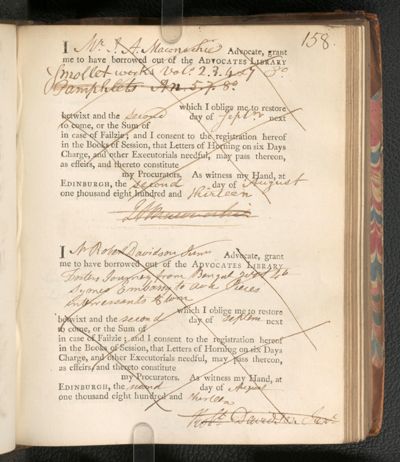 158.
I Mr. J. A. Maconochie Advocate, grant
me to have borrowed out of the ADVOCATES LIBRARY
Smollet works Vols 2. 3. 4 & 7 8o
Pamphlets 8o.
which I oblige me to restore
betwixt and the second day of Septr next
to come, or the Sum of
in case of Failzie; and I consent to the registration hereof
in the Books of Session, that Letters of Horning on six Days
Charge, and other Executorials needful, may pass thereon,
as effeirs, and thereto constitute
my Procurators. As witness my Hand, at
EDINBURGH, the second day of August
one thousand eight hundred and thirteen
I Mr Robert Davidson Junr Advocate, grant
me to have borrowed out of the ADVOCATES LIBRARY
Fosters Journey from Bengal 2 vols 4to
Symes Embassy to Ava Pieces
Interessants
which I oblige me to restore
betwixt and the second day of Septem next
to come, or the Sum of
in case of Failzie; and I consent to the registration hereof
in the Books of Session, that Letters of Horning on six Days
Charge, and other Executorials needful, may pass thereon,
as effeirs, and thereto constitute
my Procurators. As witness my Hand, at
EDINBURGH, the second day of August
one thousand eight hundred and thirteen
Robt. Davidson Junr